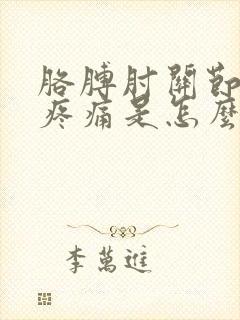 胳膊肘關節
疼痛是怎麼
李萬進